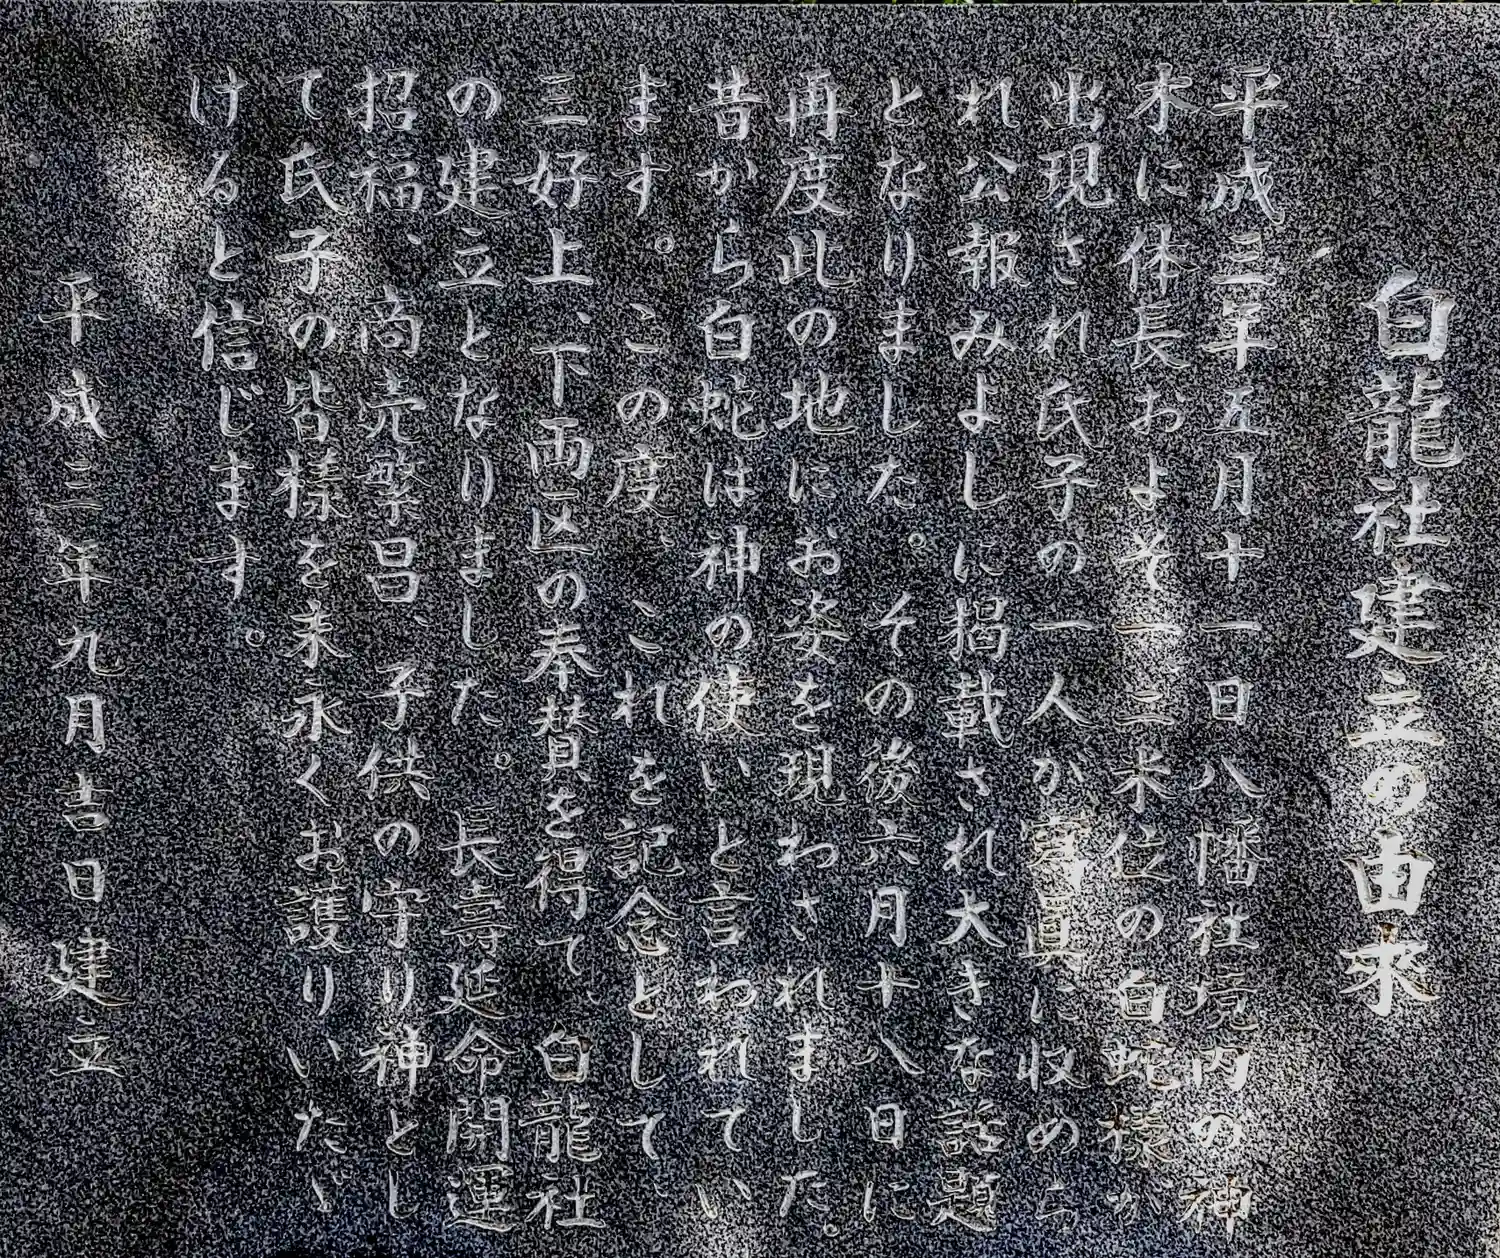 白龍社建立の由来
平成三年五月十一日八幡社境内の神
木に体長およそ一・三米位の白蛇様が
出現され氏子の一人が寫真に収めら
れ公報みよしに掲載され大きな話題
となりました。その後六月十八日に
再度此の地にお姿を現わされました。
昔から白蛇は神の使いと言われてい
ます。この度、これを記念として、
三好上、下両区の奉賛を得て、白龍社
の建立となりました。長壽延命開運
招福、商売繁昌、子供の守り神とし
て氏子の皆様を末永くお護りいたゞ
けると信じます。
平成三年九月吉日建立